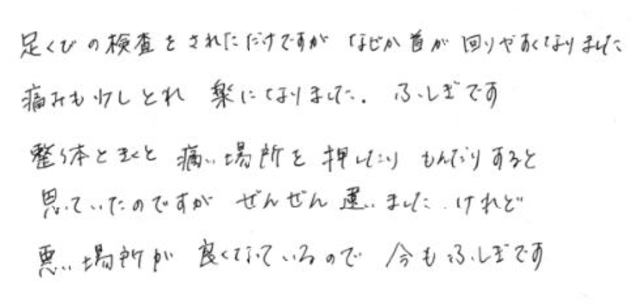 足くびの検査をされただけですが なぜか首が回りやすくなりました
痛みも少しとれ 楽になりました. ふしぎです
整体ときくと 痛い場所を押したり もんだりすると
思っていたのですが ぜんぜん違いました. けれど
悪い場所が 良くなっているので 今もふしぎです